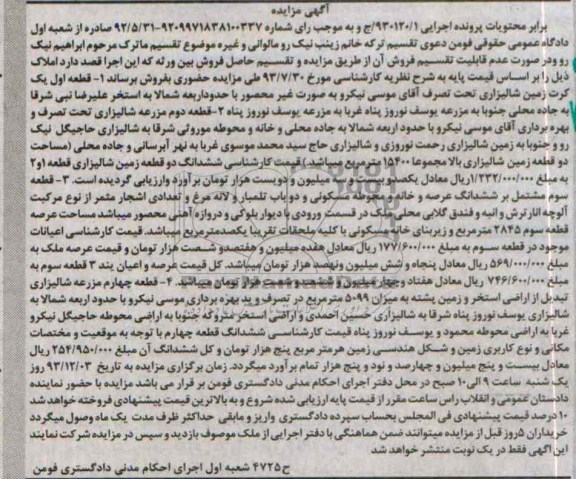 آگهی مزایده
برابر محتویات پرونده اجرایی ۹۳۰۱۲۰/۱/ج و به موجب رای شماره ۹۲۰۹۹۷۱۸۳۸۱۰۰۳۳۷-۹۲/۵/۳۱ صادره از شعبه اول
دادگاه عمومی حقوقی فومن دعوی تقسیم ترکه خانم زینب نیک رو مالوانی و غیره موضوع تقسیم ماترک مرحوم ابراهیم نیک
رو و در صورت عدم قابلیت تقسیم فروش آن از طریق مزایده و تقسیم حاصل فروش بین ورثه که این اجرا قصد دارد املاک
ذیل را بر اساس قیمت پایه به شرح نظریه کارشناسی مورخ ۹۳/۷/۳۰ طی مزایده حضوری بفروش برساند ۱- قطعه اول یک
کرت زمین شالیزاری تحت تصرف آقای موسی نیکرو به صورت غیر محصور با حدود اربعه شمالا به استخر علیرضا نبی شرقا
به جاده محلی جنوبا به مزرعه یوسف نوروز پناه غربا به مزرعه یوسف نوروز پناه ۲-قطعه دوم مزرعه شالیزاری تحت تصرف و
بهره برداری آقای موسی نیکرو با حدود اربعه شمالا به جاده محلی و خانه و محوطه موروثی شرقا به شالیزاری حاجیگل نیک
رو و جنوبا به زمین شالیزاری رحمت نوروزی و شالیزاری حاج سید محمد موسوی غربا به نهر آبرسانی و جاده محلی (مساحت
دو قطعه زمین شالیزاری بالا مجموعا ۱۵۴۰۰ مترمربع میباشد.) قیمت کارشناسی ششدانگ دو قطعه زمین شالیزاری قطعه ۱و۲
به مبلغ ۱/۲۳۲/۰۰۰/۰۰۰ ریال معادل یکصدو بیست و سه میلیون و دویست هزار تومان برآورد وارزیابی گردیده است. ۳- قطعه
سوم مشتمل بر ششدانگ عرصه و خانه و محوطه مسکونی و دو باب تلمبار و لانه مرغ و تعدادی اشجار مثمر از نوع مرکبات
آلوچه انار ترش و انبه و فندق گلابی محلی ملک در قسمت ورودی با دیوار بلوکی و دروازه آهنی محصور میباشد مساحت عرصه
قطعه سوم ۲۸۴۵ مترمربع و زیربنای خانه مسکونی با کلیه ملحقات تقریبا یکصدمترمربع میباشد. قیمت کارشناسی اعیانات
موجود در قطعه سوم به مبلغ ۱۷۷/۶۰۰/۰۰۰ ریال معادل هفده میلیون و هفتصدو شصت هزار تومان و قیمت عرصه ملک به
مبلغ ۵۶۹/۰۰۰/۰۰۰ ریال معادل پنجاه و شش میلیون ونهصد هزار تومان میباشد. کل قیمت عرصه و اعیان بند ۳ قطعه سوم به
مبلغ ۷۴۶/۶۰۰/۰۰۰ ریال معادل هفتاد و چهار میلیون و ششصد و شصت هزار تومان میباشد. ۴- قطعه چهارم مزرعه شالیزاری
تبدیل از اراضی استخر و زمین پشته به میزان ۵۰۹۹ مترمربع در تصرف و ید بهره برداری موسی نیکرو با حدود اربعه شمالا به
شالیزاری یوسف نوروز پناه شرقا به شالیزاری حسین احمدی و اراضی استخر متروکه جنوبا به اراضی محوطه حاجیگل نیکرو
غربا به اراضی محوطه محمود و یوسف نوروز پناه قیمت کارشناسی ششدانگ قطعه چهارم با توجه به موقعیت و مختصات
مکانی و نوع کاربری زمین و شکل هندسی زمین هرمتر مربع پنج هزار تومان و کل ششدانگ آن مبلغ ۲۵۴/۹۵۰/۰۰۰ ریال
معادل بیست و پنج میلیون و چهارصد و نود و پنج هزار تومان برآورد میگردد. زمان برگزاری مزایده به تاریخ ۹۳/۱۲/۰۳ روز
یک شنبه ساعت ۹ الی ۱۰ صبح در محل دفتر اجرای احکام مدنی دادگستری فومن بر قرار می باشد مزایده با حضور نماینده
دادستان عمومی و انقلاب راس ساعت مقرر از قیمت پایه ارزیابی شده شروع و به بالاترین قیمت پیشنهادی فروخته خواهد شد
۱۰ درصد قیمت پیشنهادی فی المجلس بحساب سپرده دادگستری واریز و مابقی حداکثر ظرف مدت یک ماه وصول میگردد
خریداران ۵روز قبل از مزایده میتوانند ضمن هماهنگی با دفتر اجرایی از ملک موصوف بازدید و سپس در مزایده شرکت نمایند
این آگهی فقط در یک نوبت منتشر خواهد شد
ح۴۷۲۵ شعبه اول اجرای احکام مدنی دادگستری فومن